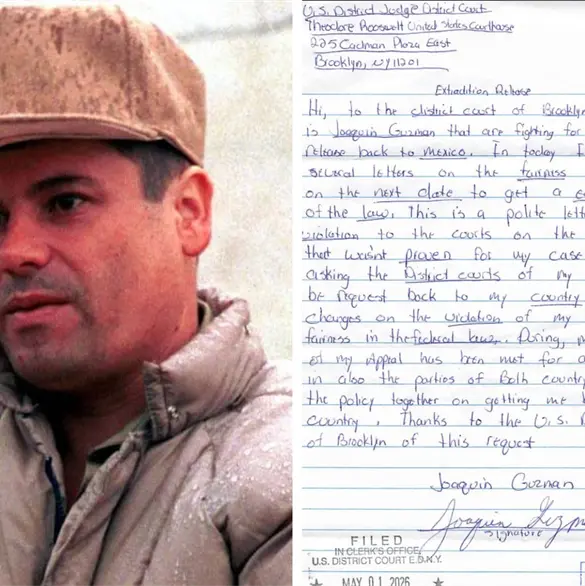 U.S. District Judge District Court
Theodore Roosevelt United States Courthouse
225 Cadman Plaza East
Brooklyn, NY 11201
Extradition Release
Hi, to the district court of Brooklyn
is Joaquin Guzman that are fighting for
release back to Mexico. In today I
several letters on the fairness
on the next date to get a
of the law. This is a polite lett
violation to the courts on the
that wasn't proven for my case
asking the District courts of my
be request back to my country
changes on the violation of my
fairness in the federal law. During, m
of my Appeal has been met for a
in also the parties of Both country
the policy together on getting me
country. Thanks to the U.S.
of Brooklyn of this request
Joaquin Guzman
Joaquin
signature
FILED
IN CLERK'S OFFICE
U.S. DISTRICT COURT E.D.N.Y.
★ MAY 01 2026 ★